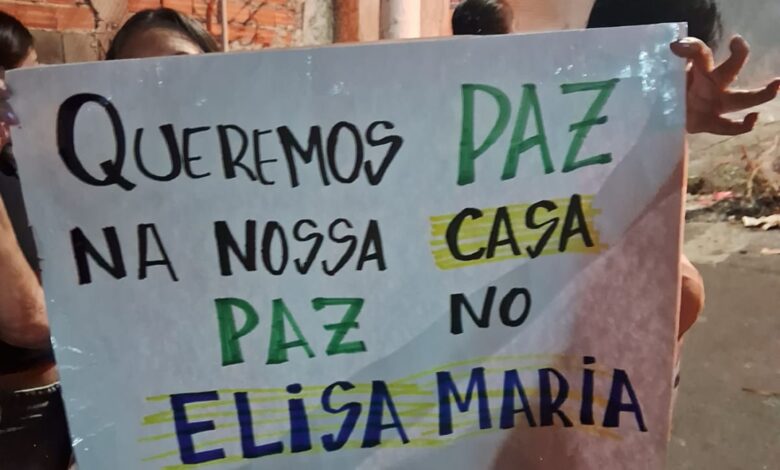 QUEREMOS PAZ
NA NOSSA CASA
PAZ NO
ELiSA MARiA